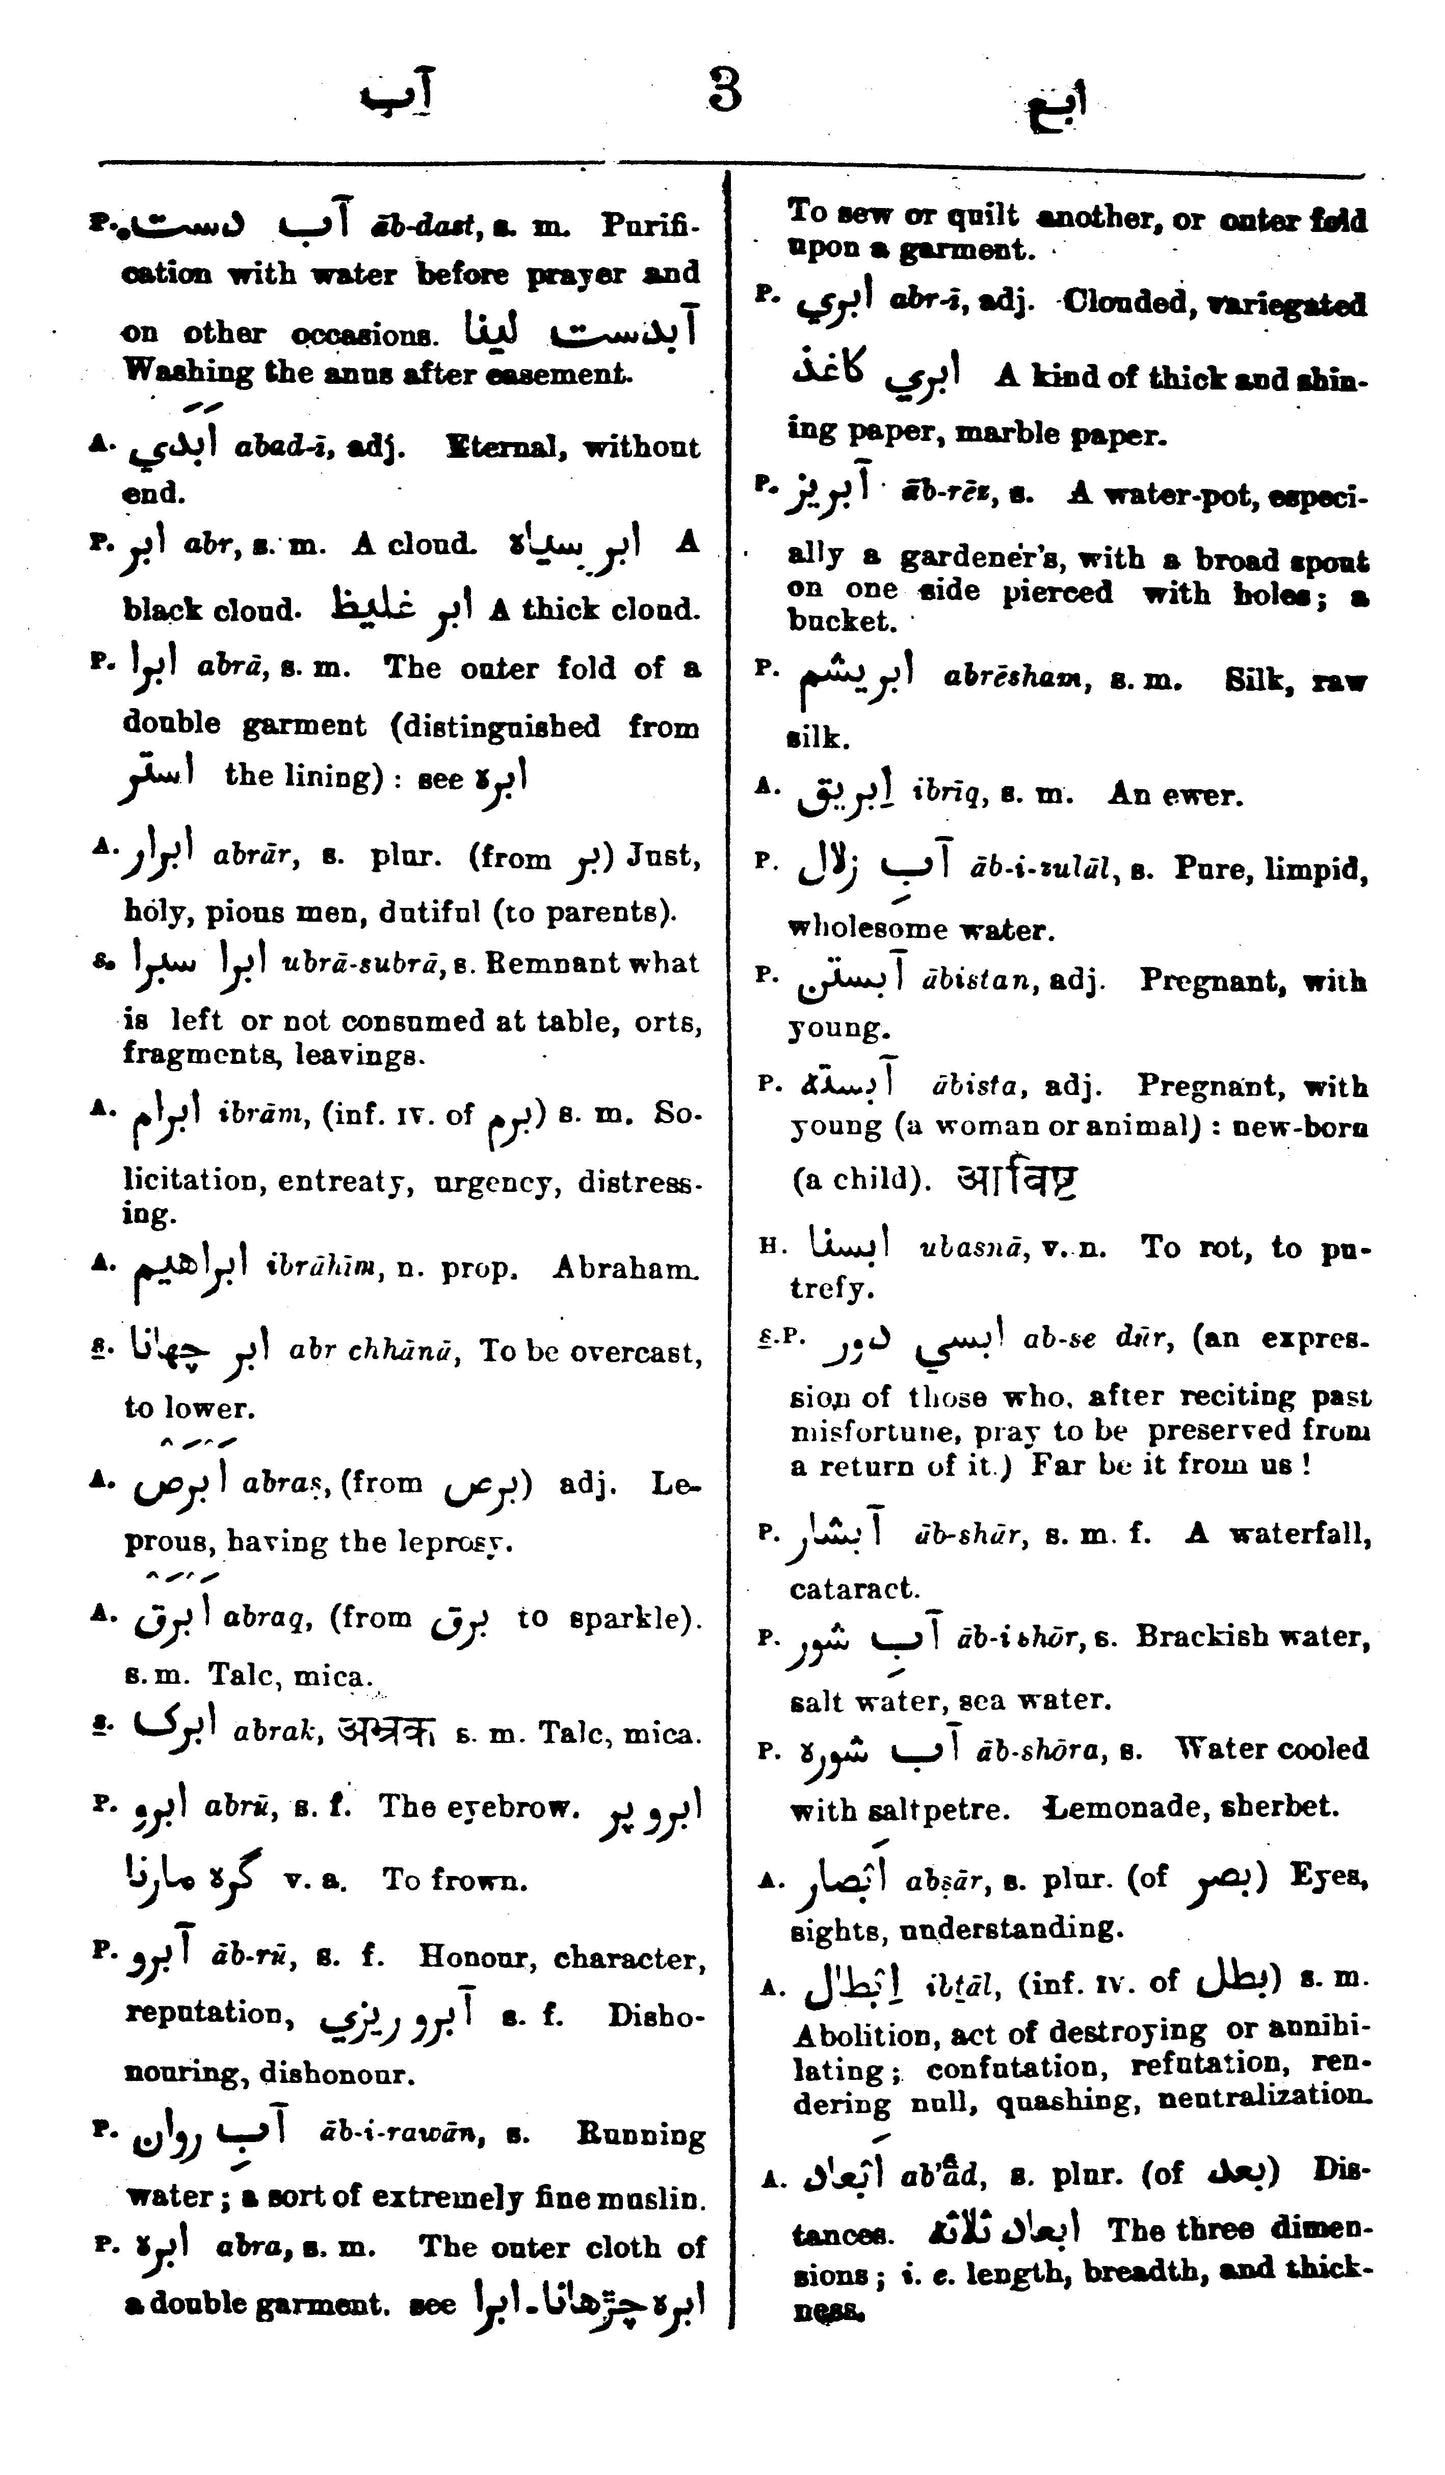 آب 3 ابع
P. آب دست āb-dast, s. m. Purifi-
cation with water before prayer and
on other occasions. آبدست لینا
Washing the anus after easement.
A. اَبَدي abad-ī, adj. Eternal, without
end.
P. ابر abr, s. m. A cloud. ابر سیاه A
black cloud. ابر غلیظ A thick cloud.
P. ابرا abrā, s. m. The outer fold of a
double garment (distinguished from
استر the lining) : see ابره
A. ابرار abrār, s. plur. (from بر) Just,
holy, pious men, dutiful (to parents).
S. ابرا سبرا ubrā-subrā, s. Remnant what
is left or not consumed at table, orts,
fragments, leavings.
A. ابرام ibrām, (inf. IV. of برم) s. m. So-
licitation, entreaty, urgency, distress-
ing.
A. ابراهیم ibrāhīm, n. prop. Abraham.
S. ابر چهانا abr chhānā, To be overcast,
to lower.
A. ابرص abraṣ, (from برص) adj. Le-
prous, having the leprosy.
A. ابرق abraq, (from برق to sparkle).
s. m. Talc, mica.
S. ابرک abrak, अभ्रक s. m. Talc, mica.
P. ابرو abrū, s. f. The eyebrow. ابرو پر
گره مارنا v. a. To frown.
P. آبرو āb-rū, s. f. Honour, character,
reputation, آبرو ریزي s. f. Disho-
nouring, dishonour.
P. آبِ روان āb-i-rawān, s. Running
water ; a sort of extremely fine muslin.
P. ابره abra, s. m. The outer cloth of
a double garment. see ابره چڙهانا ـ ابرا
To sew or quilt another, or outer fold
upon a garment.
P. ابري abr-ī, adj. Clouded, variegated
ابري کاغذ A kind of thick and shin-
ing paper, marble paper.
P. آبریز āb-rēz, s. A water-pot, especi-
ally a gardener's, with a broad spout
on one side pierced with holes ; a
bucket.
P. ابریشم abrēsham, s. m. Silk, raw
silk.
A. اِبریق ibrīq, s. m. An ewer.
P. آبِ زلال āb-i-zulāl, s. Pure, limpid,
wholesome water.
P. آبستن ābistan, adj. Pregnant, with
young.
P. آبسته ābista, adj. Pregnant, with
young (a woman or animal) : new-born
(a child). आविष्ट
H. ابسنا ubasnā, v. n. To rot, to pu-
trefy.
S.P. ابسي دور ab-se dūr, (an expres-
sion of those who, after reciting past
misfortune, pray to be preserved from
a return of it.) Far be it from us !
P. آبشار āb-shār, s. m. f. A waterfall,
cataract.
P. آبِ شور āb-i shōr, s. Brackish water,
salt water, sea water.
P. آب شوره āb-shōra, s. Water cooled
with saltpetre. Lemonade, sherbet.
A. اَبصار abṣār, s. plur. (of بصر) Eyes,
sights, understanding.
A. اِبطال ibṭāl, (inf. IV. of بطل) s. m.
Abolition, act of destroying or annihi-
lating ; confutation, refutation, ren-
dering null, quashing, neutralization.
A. اَبعاد ab'ād, s. plur. (of بعد) Dis-
tances. ابعاد ثلاثه The three dimen-
sions ; i. e. length, breadth, and thick-
ness.